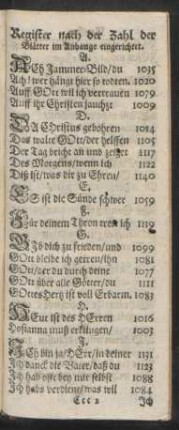 Register nach der Zahl der
Blätter im Anhange eingerichtet.
A.
ACh Jammer-Bild/du 1035
Ach! wer hängt hier so todten. 1020
Auff GOtt wil ich vertrauen 1079
Auff ihr Christen jauchzt 1009
D.
DA Christus gebohren 1014
Das walte GOtt/der helffen 1105
Der Tag bricht an und zeiget 1117
Des Morgens/wenn ich 1122
Diß ist/was dir zu Ehren/ 1140
E.
ES ist die Sünde schwer 1059
F.
Für deinem Thron tret ich 1119
G.
GIb dich zu frieden/und 1099
GOtt bleibe ich getreu/Ihn 1081
GOtt/der du durch deine 1077
GOtt über alle Götter/du 1111
GOttes Hertz ist voll Erbarm. 1083
H.
HEut ist des HErren 1016
Hosianna muß erklingen/ 1003
J.
JCh bin ja/HErr/in deiner 1131
Ich danck dir Vater/daß du 1123
Ich hab offt bey mir selbst 1088
Ich habs verdient/was wil 1084
Ccc 2 Ich